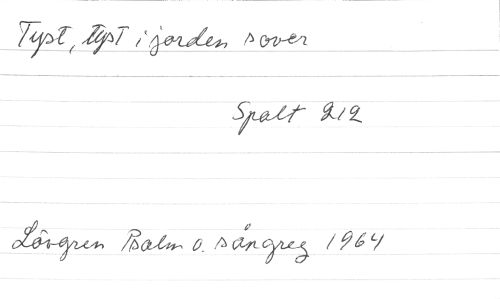 Tyst, tyst i jorden sover
Spalt 212
Lövgren Psalm o. sångreg 1964